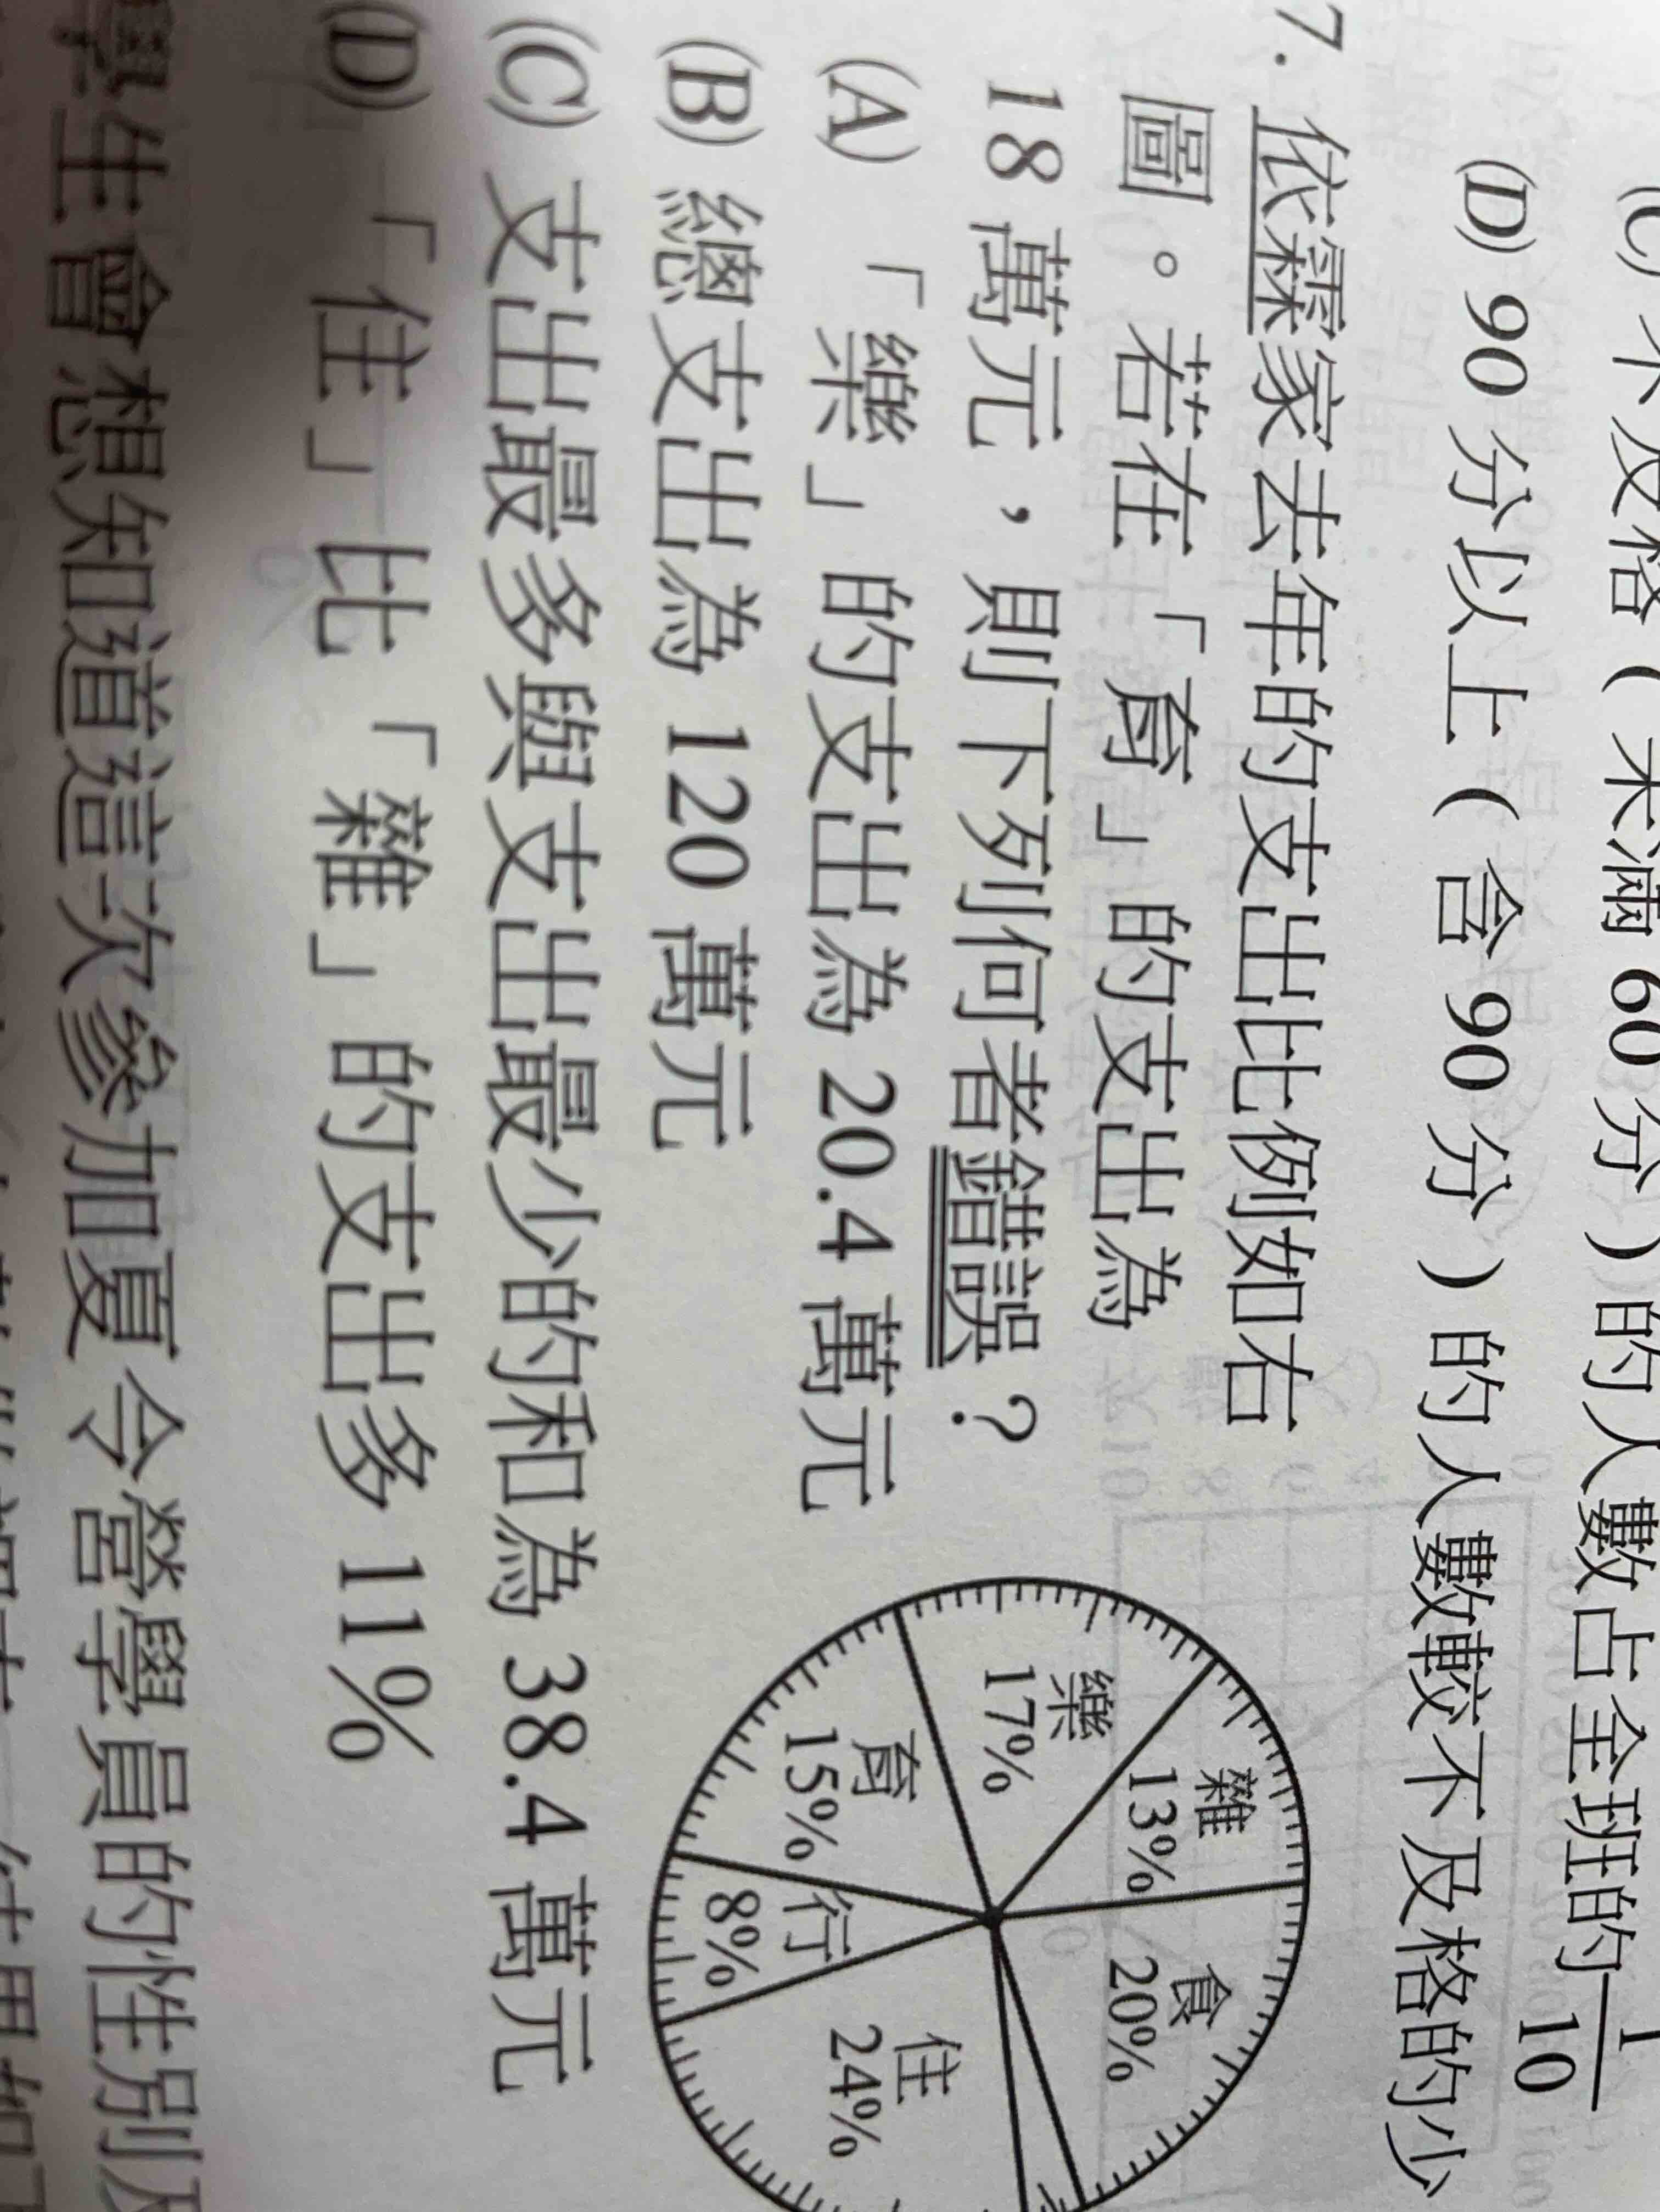 (C) 不及格（未滿 60 分）的人數占全班的 1/10
(D) 90 分以上（含 90 分）的人數較不及格的少
7. 依霖家去年的支出比例如右
圖。若在「育」的支出為
18 萬元，則下列何者錯誤？
(A) 「樂」的支出為 20.4 萬元
(B) 總支出為 120 萬元
(C) 支出最多與支出最少的和為 38.4 萬元
(D) 「住」比「雜」的支出多 11%
雜
13%
食
20%
樂
17%
育
15%
行
8%
住
24%
學生會想知道這次參加夏令營學員的性別及